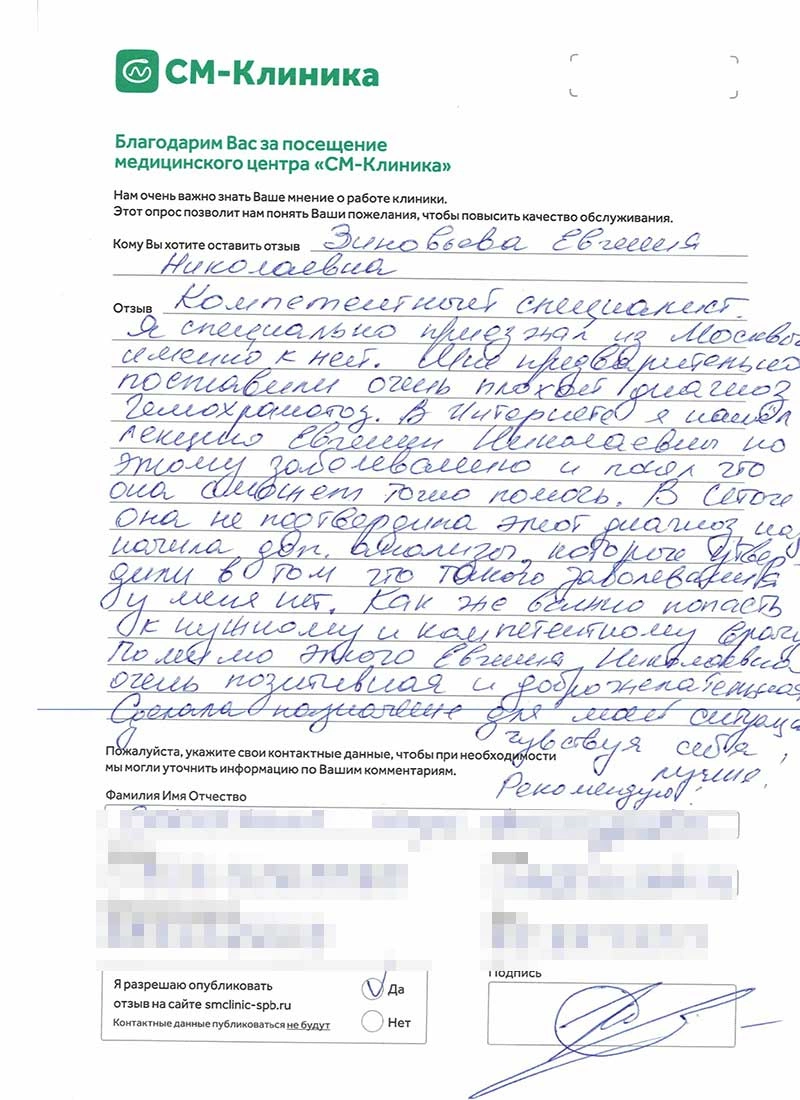 СМ-Клиника
Благодарим Вас за посещение
медицинского центра «СМ-Клиника»
Нам очень важно знать Ваше мнение о работе клиники.
Этот опрос позволит нам понять Ваши пожелания, чтобы повысить качество обслуживания.
Кому Вы хотите оставить отзыв Зиновьева Евгения
Николаевна
Отзыв Компетентный специалист.
Я специально приезжал из Москвы
именно к ней. Мне предварительно
поставили очень плохой диагноз
Гемохроматоз. В Интернете я нашел
лекцию Евгении Николаевны по
этому заболеванию и понял что
она сможет точно помочь. В итоге
она не подтвердила этот диагноз наз
начила доп. анализы, которые утвер
дили в том что такого заболевания
у меня нет. Как же важно попасть
к нужному и компетентному врачу
Помимо этого Евгения Николаевна
очень позитивная и доброжелательная
Сделала назначение для моей ситуации
Чувствуя себя
лучше.
Рекомендую!
Пожалуйста, укажите свои контактные данные, чтобы при необходимости
мы могли уточнить информацию по Вашим комментариям.
Фамилия Имя Отчество
Я разрешаю опубликовать
отзыв на сайте smclinic-spb.ru
Контактные данные публиковаться не будут
Да
Нет
Подпись